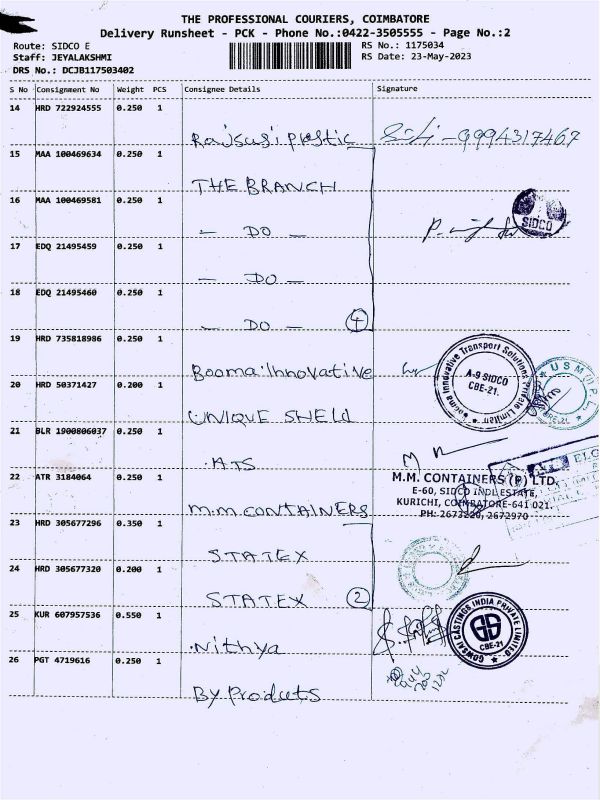 THE PROFESSIONAL COURIERS, COIMBATORE
Delivery Runsheet - PCK - Phone No.:0422-3505555 - Page No.:2
Route: SIDCO E
RS No.: 1175034
Staff: JEYALAKSHMI
RS Date: 23-May-2023
DRS No.: DCJB117503402
S No Consignment No Weight PCS Consignee Details Signature
14 HRD 722924555 0.250 1
Rajsugi plastic 9994317467
15 MAA 100469634 0.250 1
THE BRANCH
16 MAA 100469581 0.250 1
SIDCO
— DO —
17 EDQ 21495459 0.250 1
— DO —
18 EDQ 21495460 0.250 1
— DO — 4
19 HRD 735818986 0.250 1
Booma Innovative
Booma Innovative Transport Solutions Private Limited
A-9 SIDCO
CBE-21.
20 HRD 50371427 0.200 1
USM
UNIQUE SHELD
21 BLR 1900806037 0.250 1
ATS
22 ATR 3184064 0.250 1
M.M. CONTAINERS (P) LTD.
E-60, SIDCO INDL ESTATE,
KURICHI, COIMBATORE-641 021.
PH: 2673220, 2672970
M.M. CONTAINERS
23 HRD 305677296 0.350 1
STATEX
24 HRD 305677320 0.200 1
STATEX 2
25 KUR 607957536 0.550 1
Nithya
GOWSAI CASTINGS INDIA PRIVATE LIMITED
CBE-21
26 PGT 4719616 0.250 1
By Products